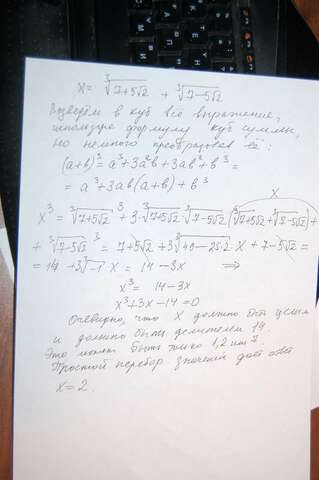 x = ∛(7+5√2) + ∛(7−5√2)
Возведём в куб всё выражение,
используя формулу куб суммы,
но немного преобразовав её:
(a+b)³ = a³+3a²b+3ab²+b³ =
= a³+3ab(a+b)+b³
x
x³ = ∛(7+5√2)³ + 3·∛(7+5√2)·∛(7−5√2)(∛(7+5√2)+∛(7−5√2)) +
+ ∛(7−5√2)³ = 7+5√2+3∛(49−25·2)·x+7−5√2 =
= 14+3∛(−1)·x = 14−3x ⇒
x³ = 14−3x
x³+3x−14=0
Очевидно, что x должно быть целым
и должно быть делителем 14.
Это может быть только 1, 2 или 7
Простой перебор значений даёт ответ
x=2.